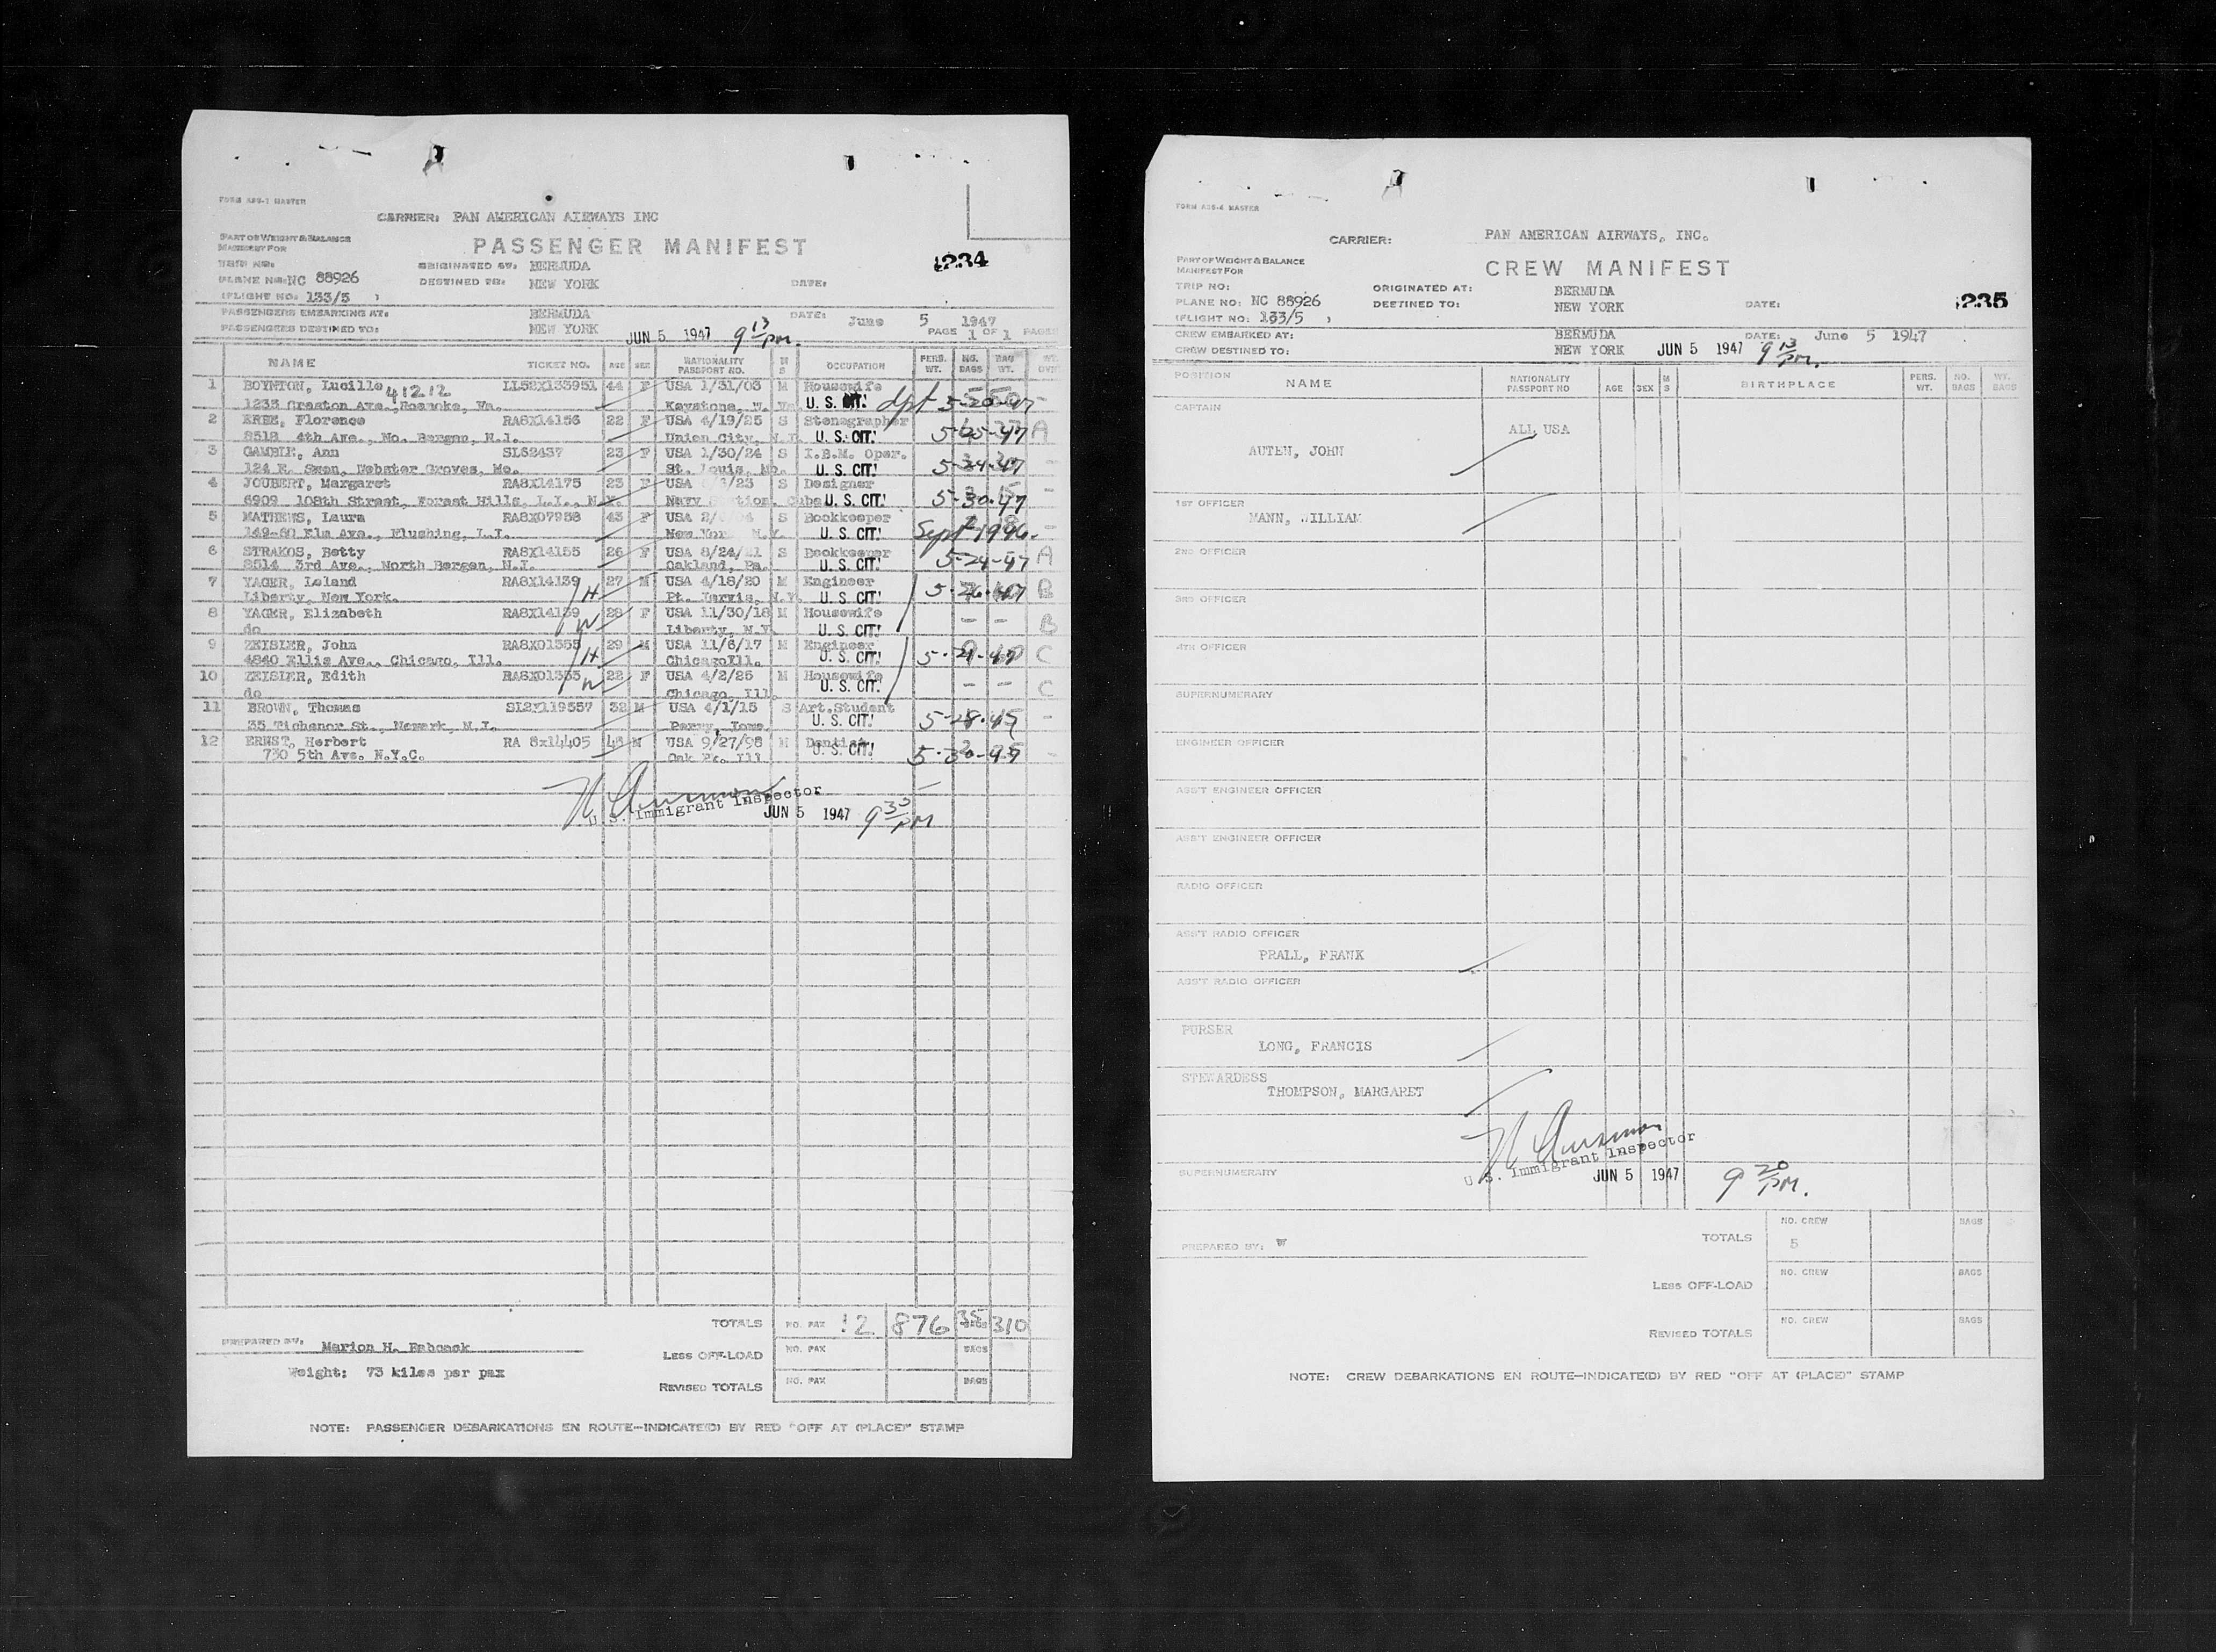 FORM ABS-1 MASTER
CARRIER: PAN AMERICAN AIRWAYS INC
PART OF WEIGHT & BALANCE
MANIFEST FOR
PASSENGER MANIFEST
1234
TRIP NO:
ORIGINATED AT: BERMUDA
PLANE NO: NC 88926
DESTINED TO: NEW YORK
DATE:
(FLIGHT NO: 133/5 )
PASSENGERS EMBARKING AT: BERMUDA
DATE: June 5 1947
PASSENGERS DESTINED TO: NEW YORK
JUN 5 1947 9 13 PM.
PAGE 1 OF 1 PAGES
NAME TICKET NO. AGE SEX NATIONALITY PASSPORT NO. M S OCCUPATION PERS. WT. NO. BAGS BAG WT. WT.
1 BOYNTON, Lucille 41212 LL52X133951 44 F USA 1/31/03 M Housewife
1233 Graston Ave., Roanoke, Va. Keystone, W. Va. U. S. CIT. dpt 5-20-47
2 ERBE, Florence RA8X14156 22 F USA 4/19/25 S Stenographer
8518 4th Ave., No. Bergen, N.J. Union City, N.J. U. S. CIT. 5-25-47 A
3 GAMBLE, Ann SL62437 23 F USA 1/30/24 S I.B.M. Oper.
124 E. Swon, Webster Groves, Mo. St. Louis, Mo. U. S. CIT. 5-24-47 -
4 JOUBERT, Margaret RA8X14175 23 F USA /23 S Designer
6909 108th Street, Forest Hills, L.I., N.Y. Navy Station, Cuba U. S. CIT. 5-30-47 -
5 MATHEWS, Laura RA8X07958 43 F USA 2/ S Bookkeeper
149-60 Elm Ave., Flushing, L.I. New York N.Y. U. S. CIT. Sept 1946. -
6 STRAKOS, Betty RA8X14155 26 F USA 8/24/21 S Bookkeeper
8514 3rd Ave., North Bergen, N.J. Oakland, Pa. U. S. CIT. 5-24-47 A
7 YAGER, Leland RA8X14139 27 M USA 4/18/20 M Engineer
Liberty, New York. H Pt. Jervis, N.Y. U. S. CIT. 5-26-47 B
8 YAGER, Elizabeth RA8X14139 28 F USA 11/30/18 M Housewife
do W Liberty, N.Y. U. S. CIT. - - B
9 ZEISLER, John RA8X01355 29 M USA 11/6/17 M Engineer
4840 Ellis Ave., Chicago, Ill. H Chicago Ill. U. S. CIT. C
10 ZEISLER, Edith RA8X01355 22 F USA 4/2/25 M Housewife
do W Chicago, Ill. U. S. CIT. - - C
11 BROWN, Thomas SL2X119557 32 M USA 4/1/15 S Art. Student
35 Tichenor St., Newark, N.J. Perry, Iowa. U. S. CIT. -
12 ERNST, Herbert RA 8x14405 48 M USA 9/27/98 M Dentist
730 5th Ave. N.Y.C. Oak Pk. Ill U. S. CIT. -
U. S. Immigrant Inspector
JUN 5 1947 9 30 PM
TOTALS NO. PAX 12 876 35 BAGS 310
PREPARED BY: Marion H. Babcock
LESS OFF-LOAD NO. PAX BAGS
Weight: 73 kilos per pax
REVISED TOTALS NO. PAX BAGS
NOTE: PASSENGER DEBARKATIONS EN ROUTE—INDICATE(D) BY RED "OFF AT (PLACE)" STAMP
FORM ABS-4 MASTER
CARRIER: PAN AMERICAN AIRWAYS, INC.
PART OF WEIGHT & BALANCE
MANIFEST FOR
CREW MANIFEST
TRIP NO:
ORIGINATED AT: BERMUDA
PLANE NO: NC 88926
DESTINED TO: NEW YORK
DATE:
1235
(FLIGHT NO: 133/5 )
CREW EMBARKED AT: BERMUDA
DATE: June 5 1947
CREW DESTINED TO: NEW YORK JUN 5 1947 9 13 PM.
POSITION NAME NATIONALITY PASSPORT NO AGE SEX M S BIRTHPLACE PERS. WT. NO. BAGS WT. BAGS
CAPTAIN
ALL USA
AUTEN, JOHN
1ST OFFICER
MANN, WILLIAM
2ND OFFICER
3RD OFFICER
4TH OFFICER
SUPERNUMERARY
ENGINEER OFFICER
ASS'T ENGINEER OFFICER
ASS'T ENGINEER OFFICER
RADIO OFFICER
ASS'T RADIO OFFICER
PRALL, FRANK
ASS'T RADIO OFFICER
PURSER
LONG, FRANCIS
STEWARDESS
THOMPSON, MARGARET
U. S. Immigrant Inspector
SUPERNUMERARY
JUN 5 1947 9 20 PM.
NO. CREW BAGS
PREPARED BY: W
TOTALS 5
NO. CREW BAGS
LESS OFF-LOAD
NO. CREW BAGS
REVISED TOTALS
NOTE: CREW DEBARKATIONS EN ROUTE—INDICATE(D) BY RED "OFF AT (PLACE)" STAMP